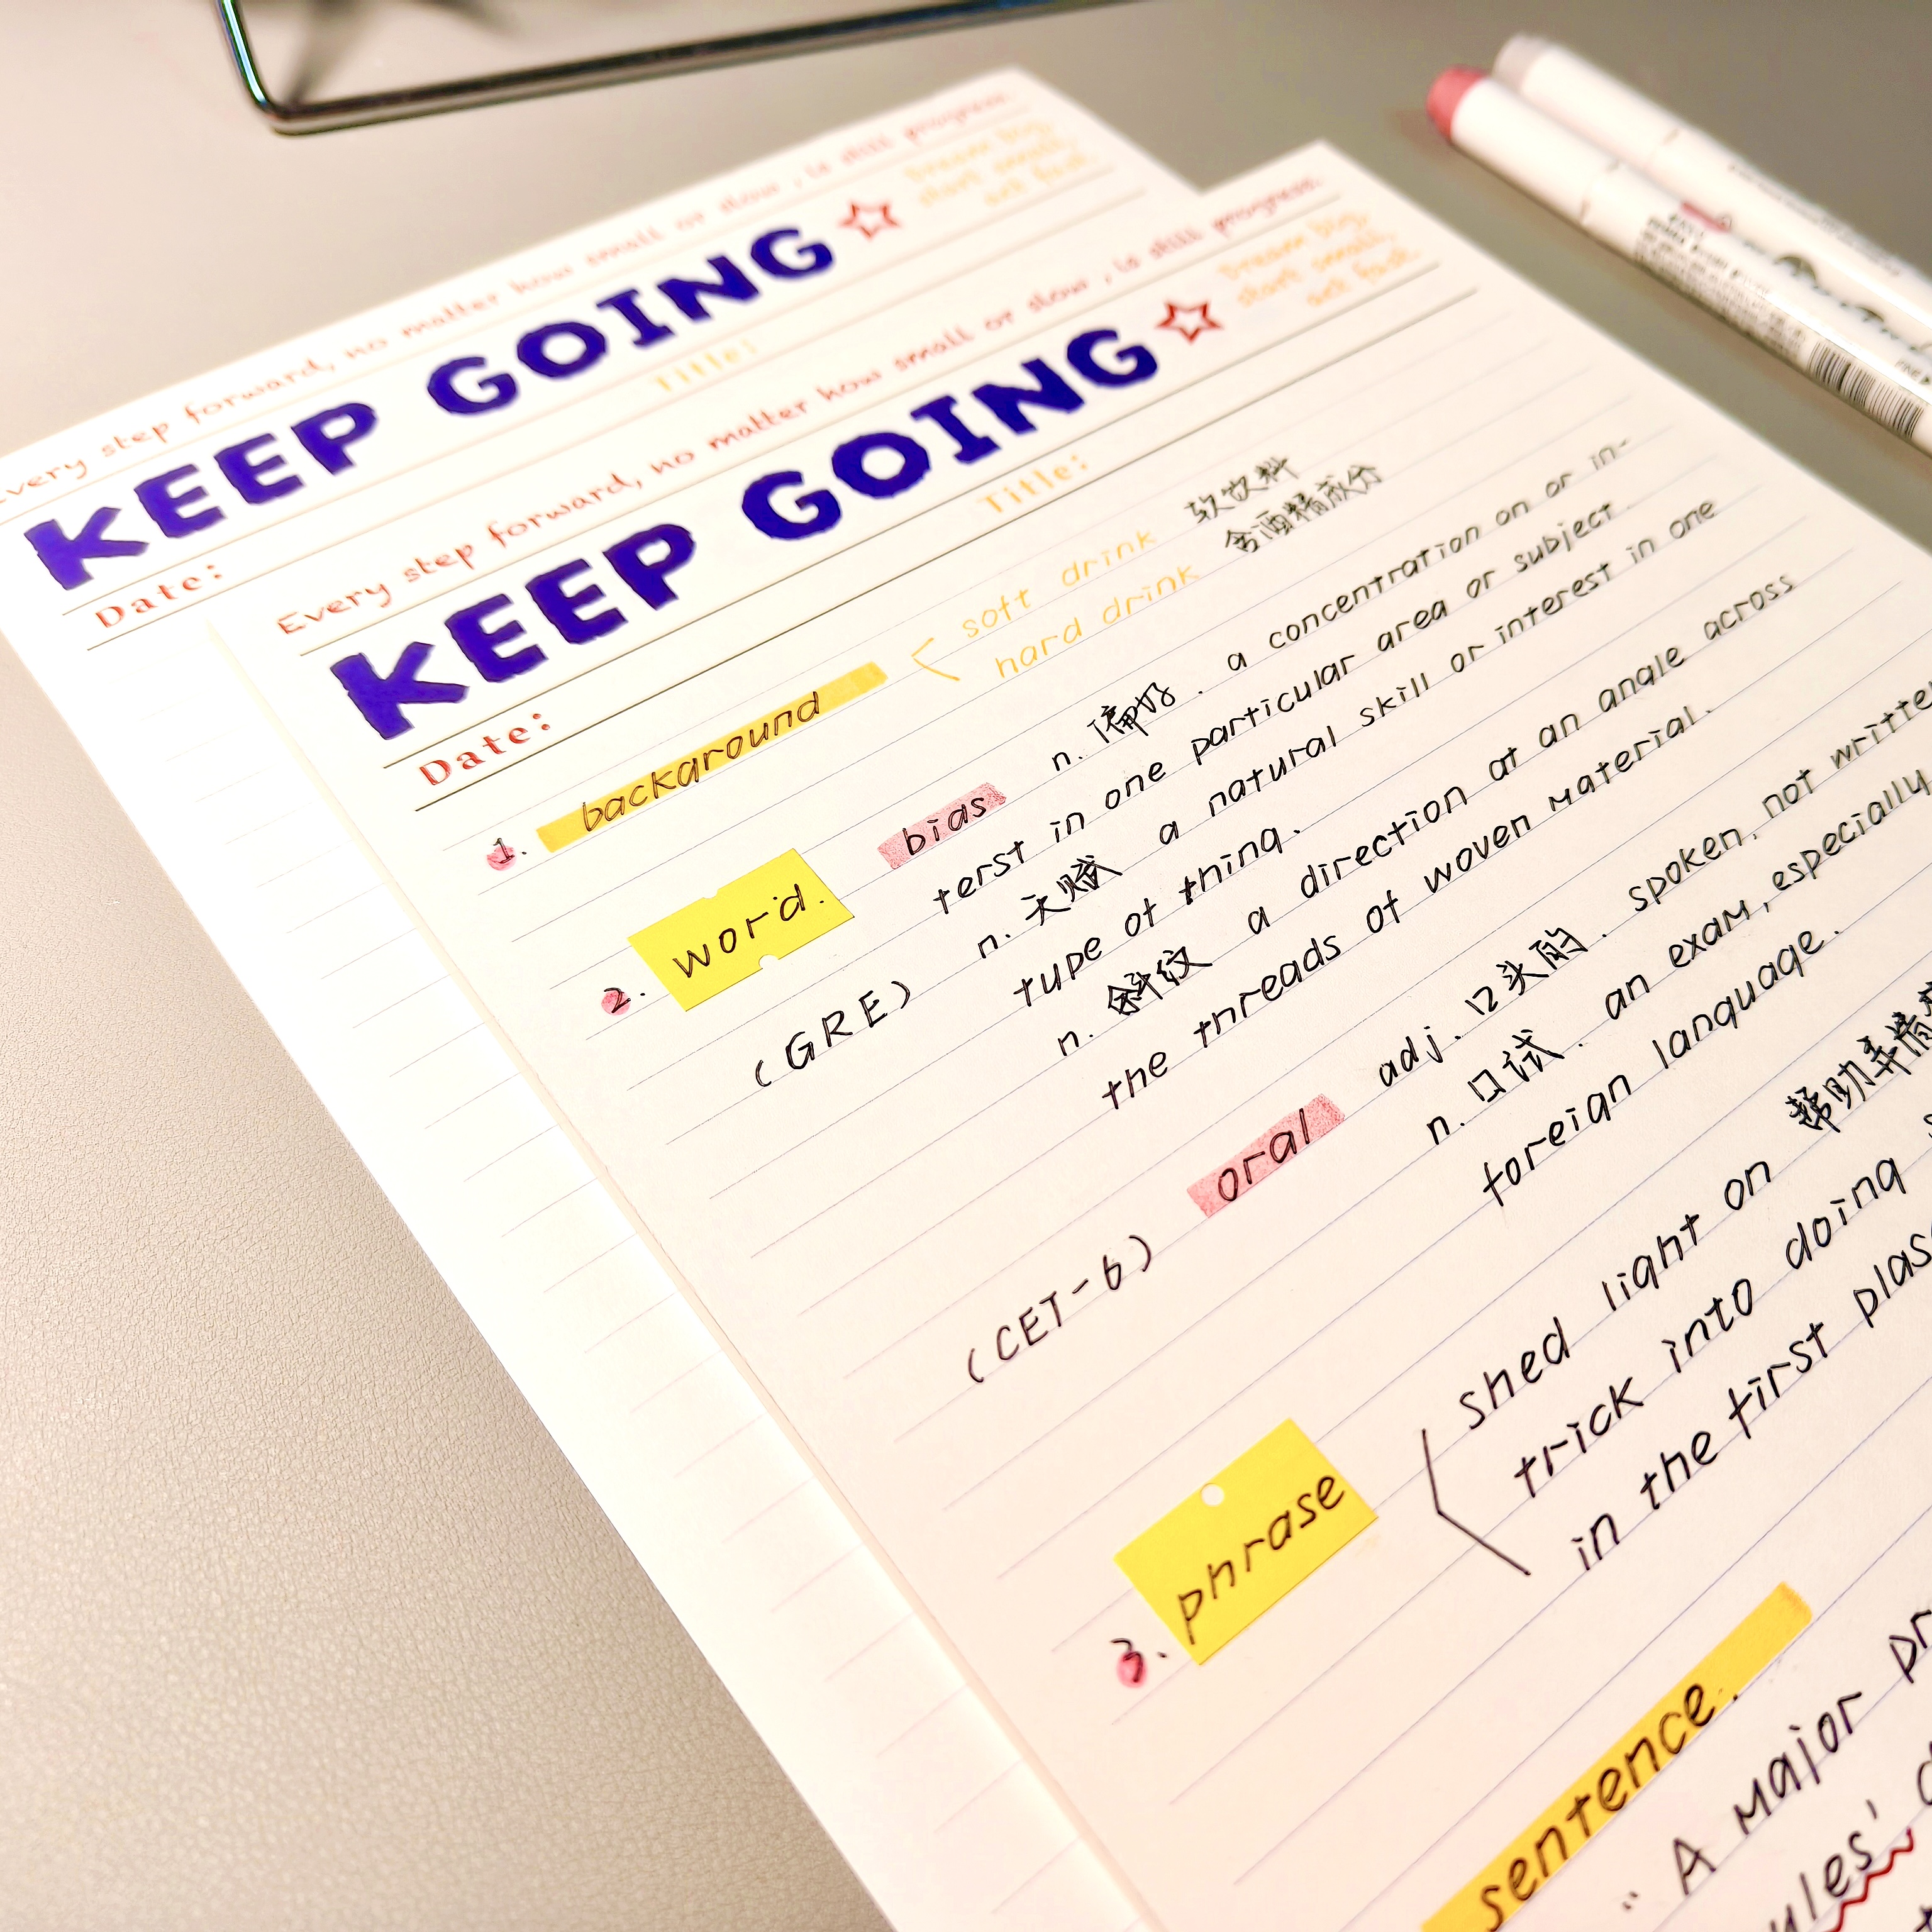 Every step forward, no matter how small or slow, is still progress.
Dream big,
start small,
act fast.
KEEP GOING
Date:
Title:
Every step forward, no matter how small or slow, is still progress.
Dream big,
start small,
act fast.
KEEP GOING
Date:
Title:
1. background
soft drink 软饮料
hard drink 含酒精成分
2. word. bias n. 偏好. a concentration on or in-
terst in one particular area or subject.
(GRE) n. 天赋 a natural skill or interest in one
type of thing.
n. 斜纹 a direction at an angle across
the threads of woven material.
(CET-6) oral adj. 口头的. spoken, not written
n. 口试. an exam, especially
foreign language.
3. phrase shed light on 帮助弄清
trick into doing
in the first plas
sentence.
" A major pr
ules'